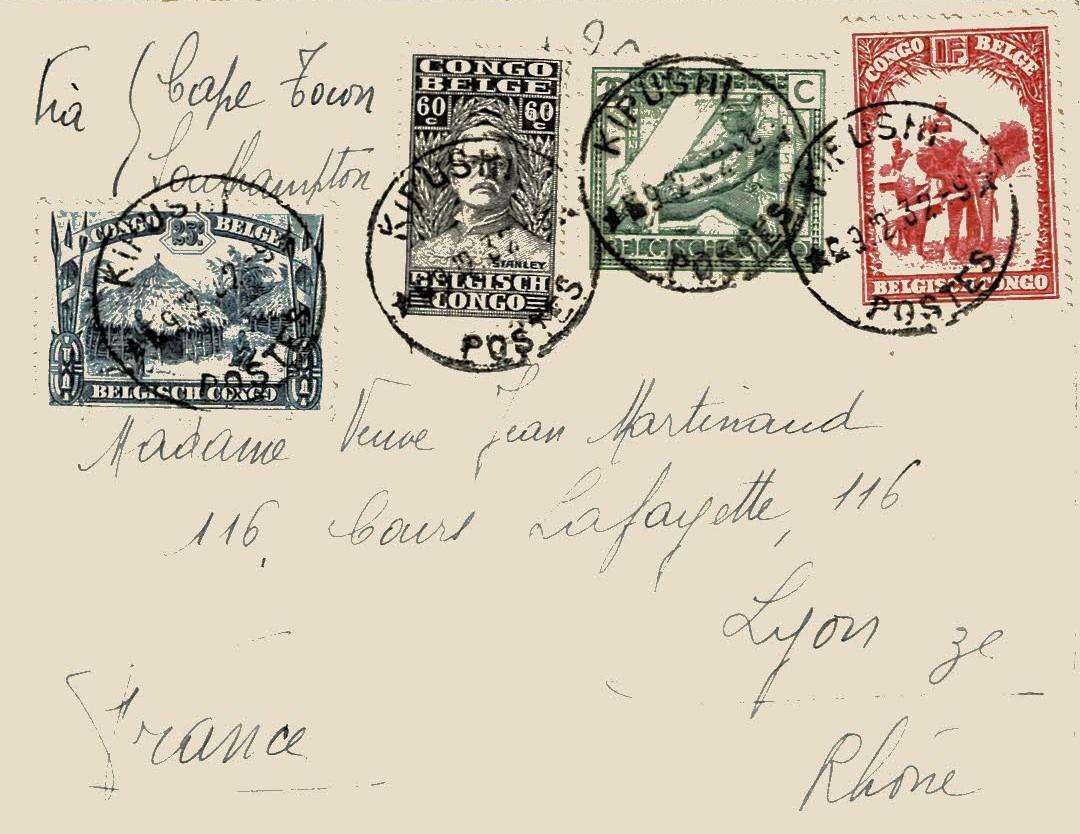 Via
Cape Town
Southampton
CONGO 25c BELGE
BELGISCH CONGO
KIPUSHI
POSTES
CONGO
BELGE
60 c 60 c
STANLEY
BELGISCH
CONGO
KIPUSHI
POSTES
C
BELGISCH
KIPUSHI
POSTES
CONGO 1F BELGE
BELGISCH CONGO
KIPUSHI
POSTES
Madame Veuve Jean Martinaud
116, Cours Lafayette, 116
Lyon 3e
Rhône
France